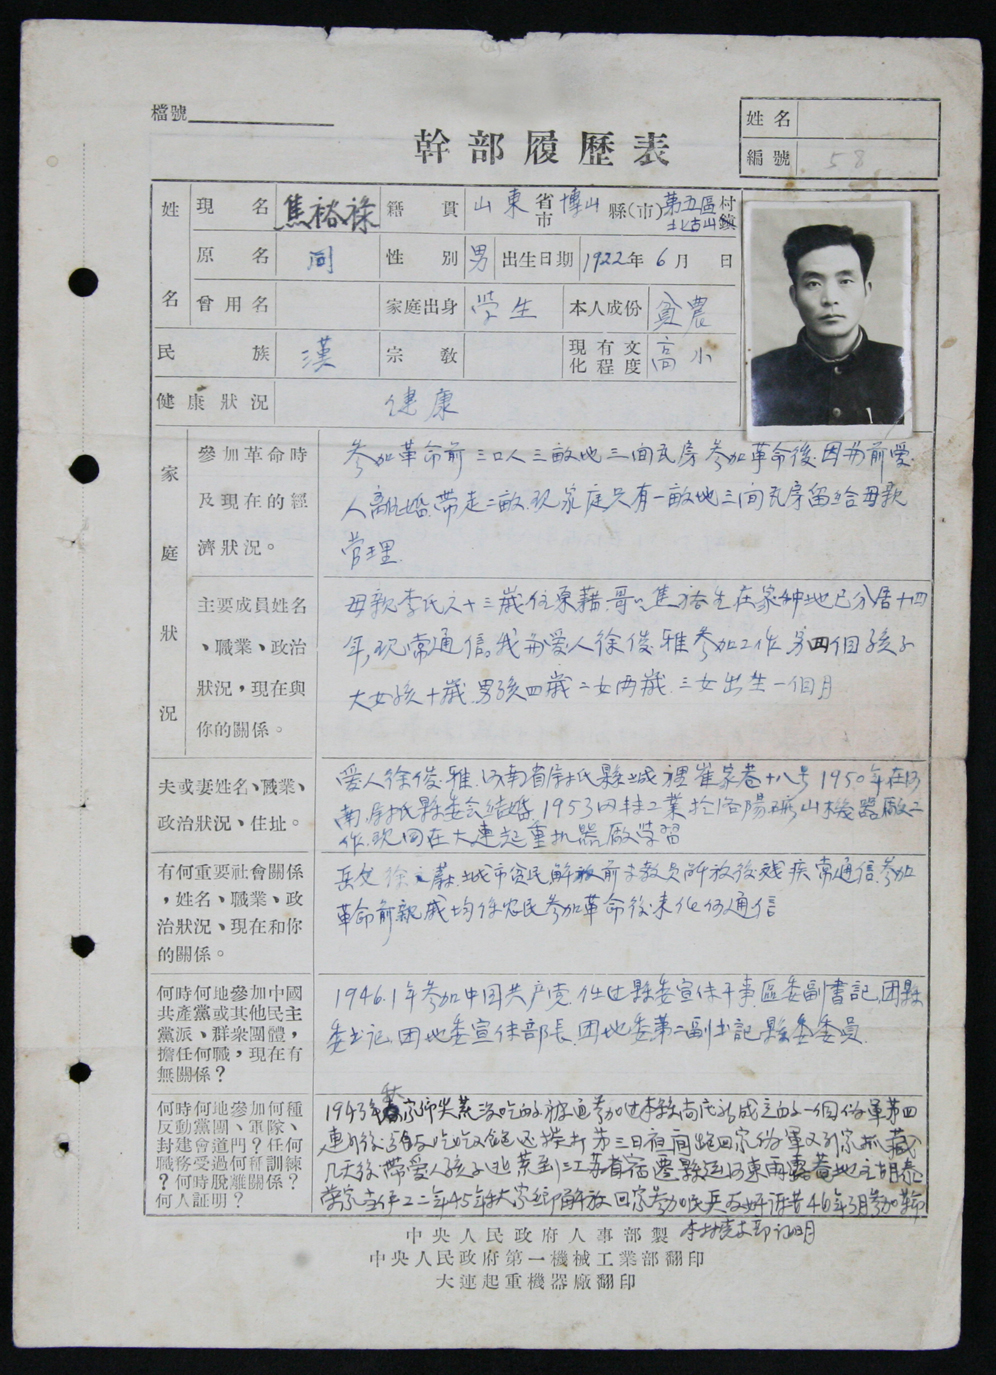 檔號
幹部履歷表
姓名
編號 58
姓名 現名 焦裕祿 籍貫 山東省市 博山縣(市) 第五區北古山村鎮
原名 同 性別 男 出生日期 1922年6月 日
曾用名 家庭出身 學生 本人成份 貧農
民族 漢 宗教 現有文化程度 高小
健康狀況 健康
家庭狀況
參加革命時及現在的經濟狀況。
參加革命前三口人三畝地三間瓦房參加革命後因為前愛
人離婚帶走二畝.現家庭只有一畝地三間瓦房留給母親
管理.
主要成員姓名、職業、政治狀況，現在與你的關係。
母親李氏六十三歲住原籍.哥哥焦裕生在家种地已分居十四
年,現常通信,我的愛人徐俊雅參加工作,另四個孩子
大女孩十歲.男孩四歲二女两歲.三女出生一個月
夫或妻姓名、職業、政治狀況、住址。
愛人徐俊雅.河南省尉氏縣城裡崔家巷十八号1950年在河
南尉氏縣委会結婚.1953同转工業於洛陽礦山機器廠工
作.現同在大連起重机器廠学習
有何重要社會關係，姓名、職業、政治狀況、現在和你的關係。
岳父徐 城市貧民解放前 教員解放後殘疾常通信.參加
革命前親戚均係农民參加革命後未 通信
何時何地參加中國共產黨或其他民主黨派、群衆團體，擔任何職，現在有無關係？
1946.1年參加中国共产党.任过縣委宣传干事.區委副書記.团縣
委书记.团地委宣传部長.团地委第二副书記.縣委委員.
何時何地參加何種反動黨團、軍隊、封建會道門？任何職務受過何種訓練？何時脫離關係？何人証明？
1943年 家 没吃的被 參加过本縣南 新成立的一個伪軍第四
連 第三日夜間跑回家伪軍又到家抓藏
几天後帶愛人孩子 到江苏省宿遷縣 地主胡泰
榮家 工二年45年 家鄉解放回家參加民兵 46年3月參加革命
本村党支部证明
中央人民政府人事部製
中央人民政府第一機械工業部翻印
大連起重機器廠翻印